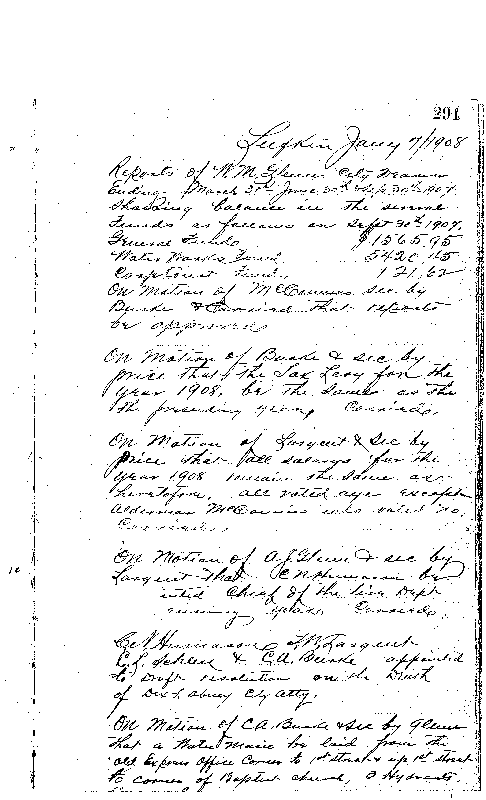 291
Lufkin Jany 7/1908
Reports of W.M. Glenn City Treasurer
Ending March 31st June 30th & Sep. 30th 1907.
Showing balance in the several
Funds as follows on Sept 30th 1907.
General Funds $1565.95
Water Works Fund 5420.15
Fund 121.62
On Motion of McConnico sec by
Burke & Carried that reports
be approved
On Motion of Burke & sec by
price that the Tax Levy for the
year 1908. be the same as the
the preceding year, Carried.
On Motion of Largent & Sec by
price that all salarys for the
year 1908 remain the same as
heretofore, all voted aye except
Alderman McConnico who voted no,
Carried.
On Motion of A.J. Glenn & sec by
Largent that C N Humason be
Chief of the fire Dept
ensuing year Carried
C.N Humason, Largent
C.L. & C.A. Burke appointed
to Draft resolution on the Death
of City Atty.
On Motion of C A. Burke & Sec by Glenn
that a Water Main be laid from the
old Express Office Corner to 1st street & up 1st street
to corner of Baptist church, 2 Hydrants